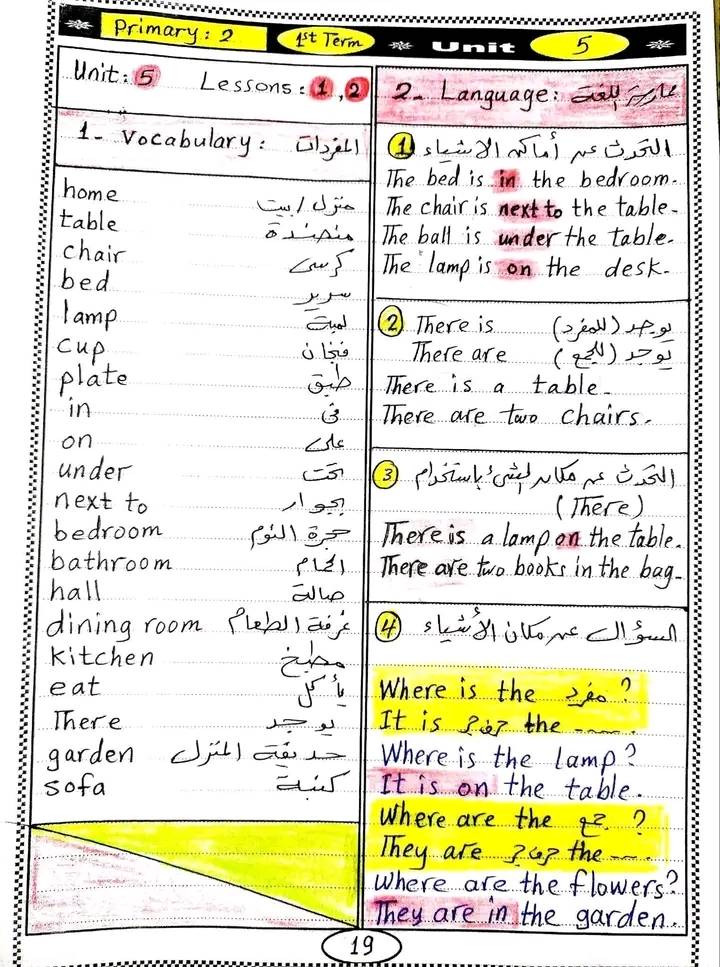 Primary: 2 1st Term Unit 5
Unit: 5 Lessons: 1, 2
1- Vocabulary: المفردات
home منزل / بيت
table منضدة
chair كرسى
bed سرير
lamp لمبة
cup فنجان
plate طبق
in فى
on على
under تحت
next to بجوار
bedroom حجرة النوم
bathroom الحمام
hall صالة
dining room غرفة الطعام
kitchen مطبخ
eat يأكل
There يوجد
garden حديقة المنزل
sofa كنبة
2- Language: ممارسة اللغة
1 التحدث عن أماكن الاشياء
The bed is in the bedroom.
The chair is next to the table.
The ball is under the table.
The lamp is on the desk.
2 There is يوجد (للمفرد)
There are يوجد (للجمع)
There is a table.
There are two chairs.
3 التحدث عن مكان الشئ باستخدام
(There)
There is a lamp on the table.
There are two books in the bag.
4 السؤال عن مكان الأشياء
Where is the مفرد ?
It is حرف جر the ----- .
Where is the lamp?
It is on the table.
Where are the جمع ?
They are حرف جر the ---- .
Where are the flowers?
They are in the garden.
19